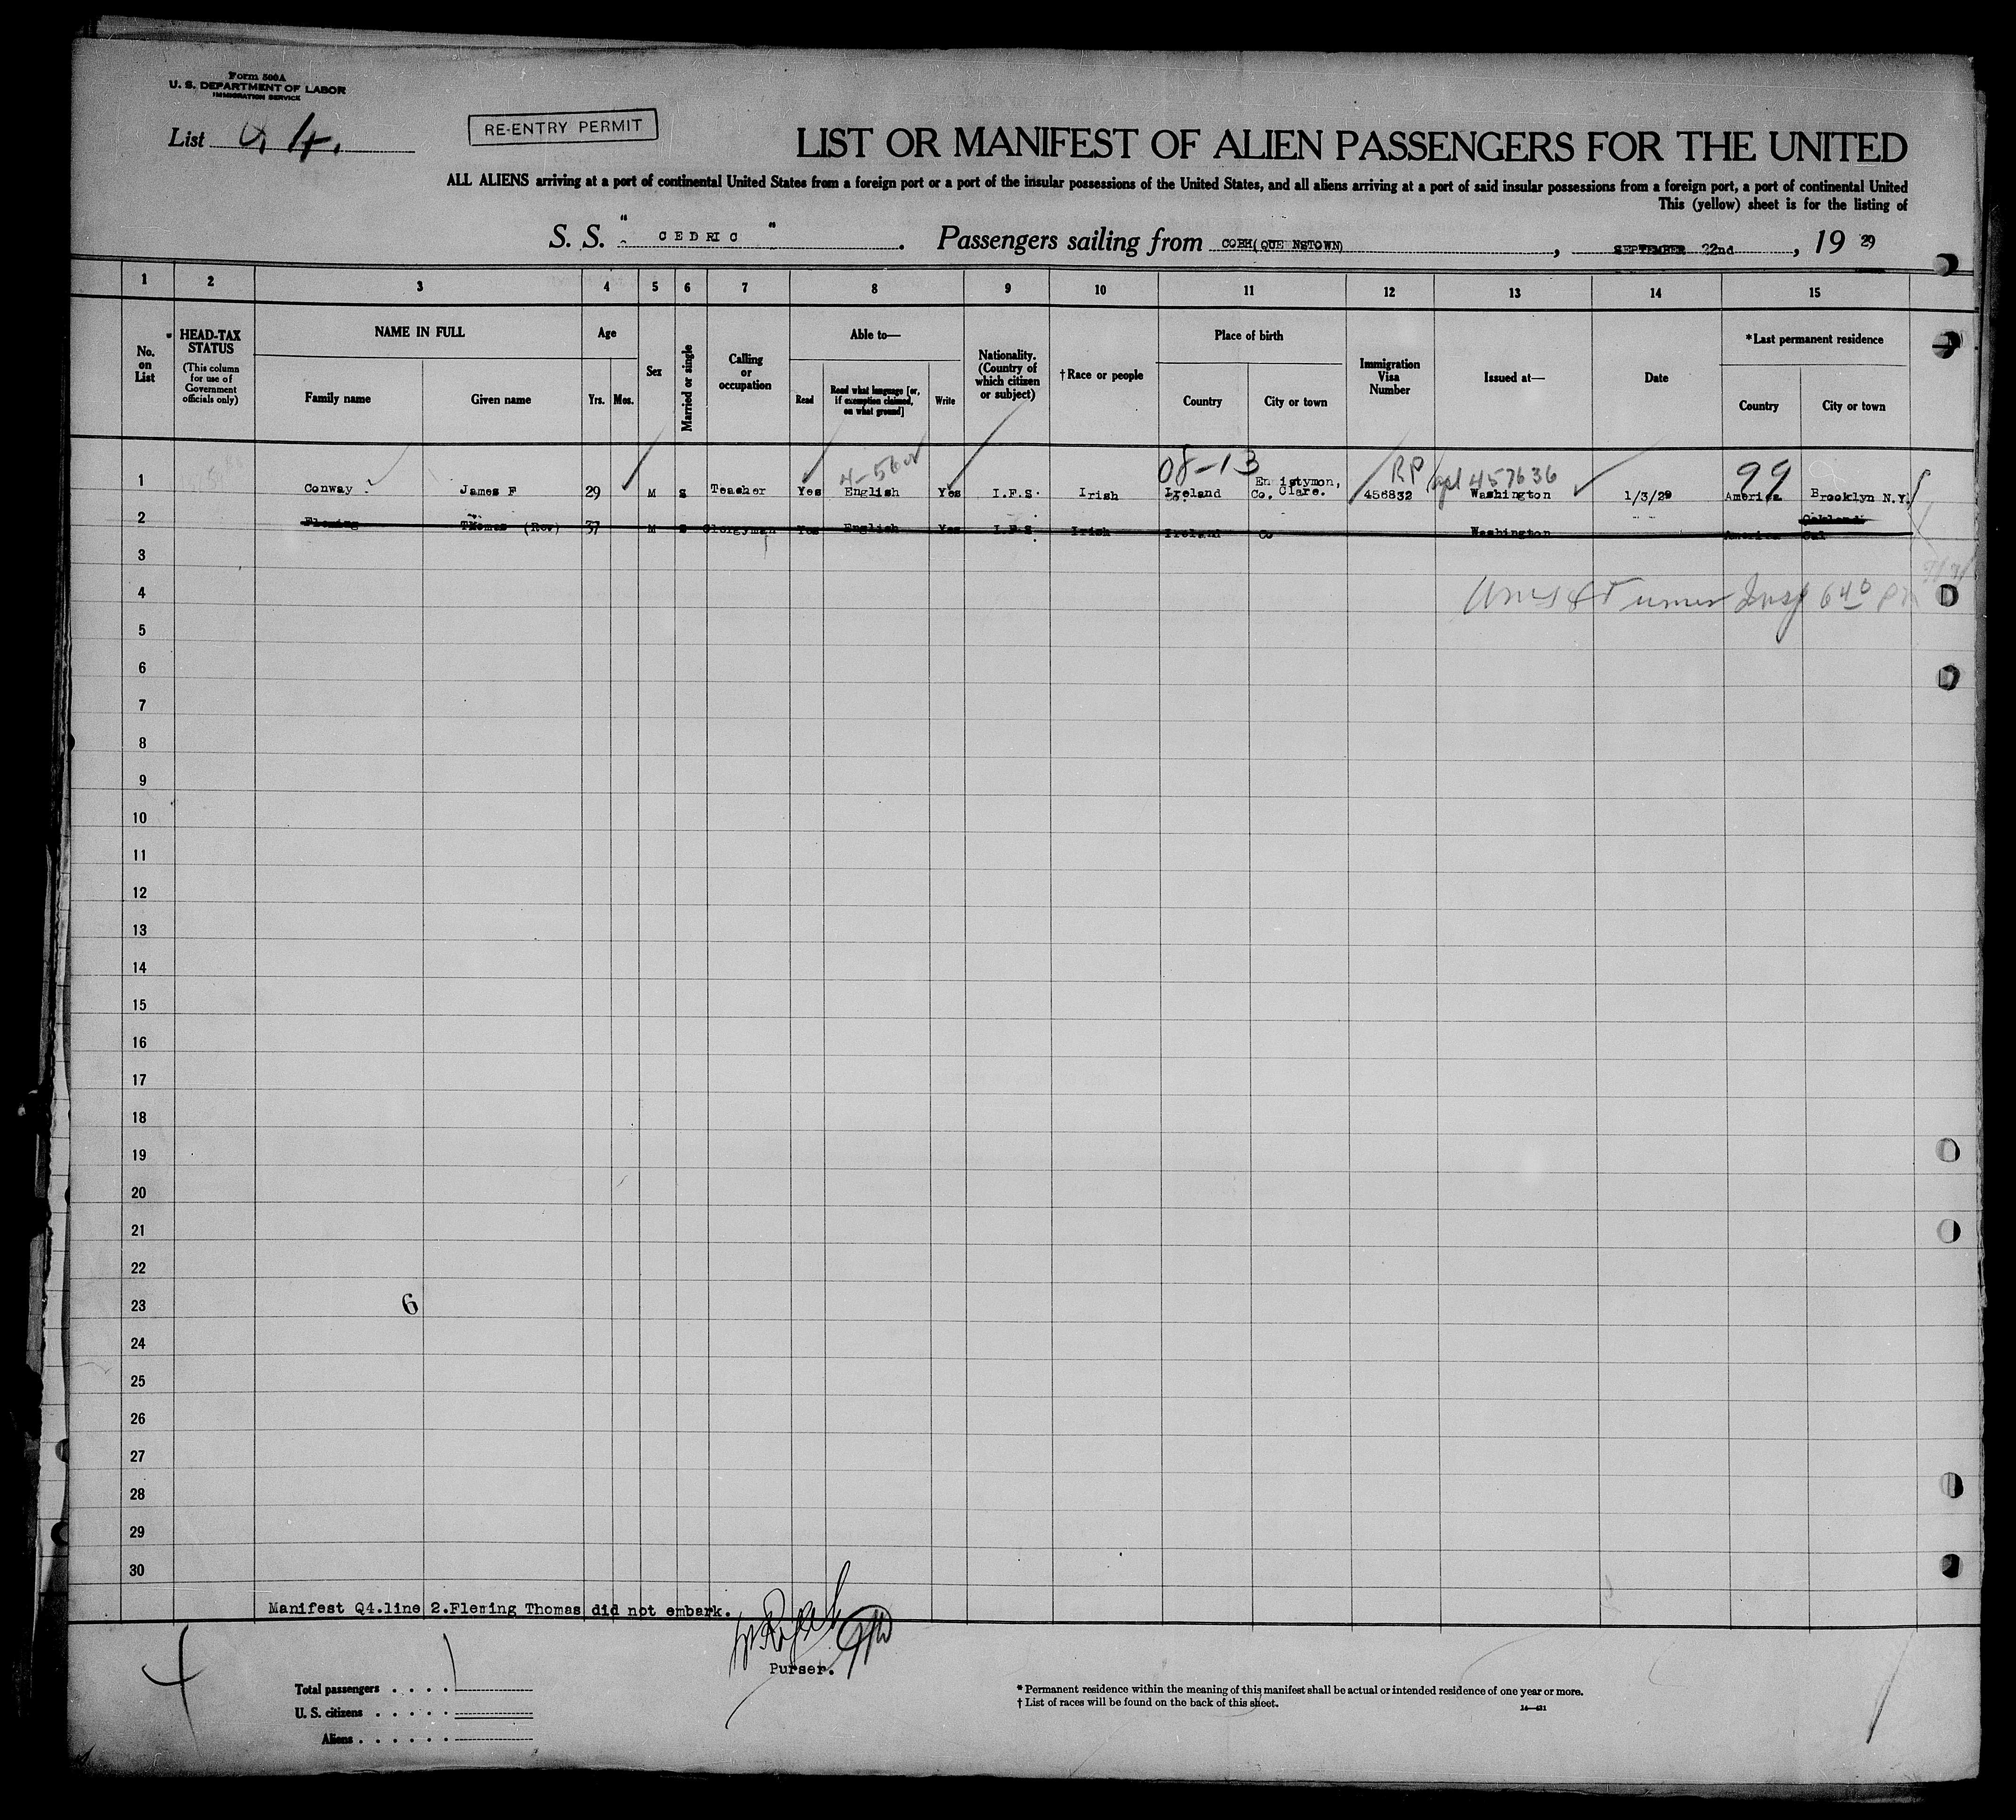 Form 500A
U. S. DEPARTMENT OF LABOR
IMMIGRATION SERVICE
List Q 4.
RE-ENTRY PERMIT
LIST OR MANIFEST OF ALIEN PASSENGERS FOR THE UNITED
ALL ALIENS arriving at a port of continental United States from a foreign port or a port of the insular possessions of the United States, and all aliens arriving at a port of said insular possessions from a foreign port, a port of continental United
This (yellow) sheet is for the listing of
S. S. " CEDRIC " . Passengers sailing from COBH(QUEENSTOWN) , SEPTEMBER 22nd , 19 29
1 2 3 4 5 6 7 8 9 10 11 12 13 14 15
No. on List
* HEAD-TAX STATUS
(This column for use of Government officials only)
NAME IN FULL
Family name
Given name
Age
Yrs.
Mos.
Sex
Married or single
Calling or occupation
Able to—
Read
Read what language [or, if exemption claimed, on what ground]
Write
Nationality. (Country of which citizen or subject)
† Race or people
Place of birth
Country
City or town
Immigration Visa Number
Issued at—
Date
*Last permanent residence
Country
City or town
08-13 RP 457636 99
1 Conway James F 29 M S Teacher Yes English Yes I.F.S. Irish Ireland Co. Clare. 456832 Washington 1/3/29 America Brooklyn N.Y.
2 Fleming Thomas (Rev) 37 M S Clergyman Yes English Yes I.F.S Irish Ireland Co Washington America Oakland Cal
3
4
5
6
7
8
9
10
11
12
13
14
15
16
17
18
19
20
21
22
23 6
24
25
26
27
28
29
30
Manifest Q4.line 2.Fleming Thomas did not embark.
Purser.
Total passengers . . . .
U. S. citizens . . . . .
Aliens . . . . . .
* Permanent residence within the meaning of this manifest shall be actual or intended residence of one year or more.
† List of races will be found on the back of this sheet.
14—421